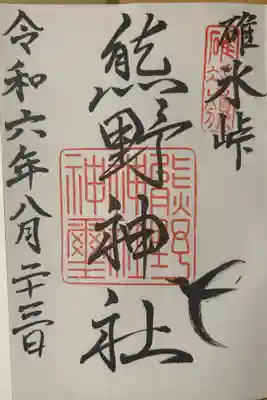 碓氷峠
熊野神社
令和六年八月二十三日